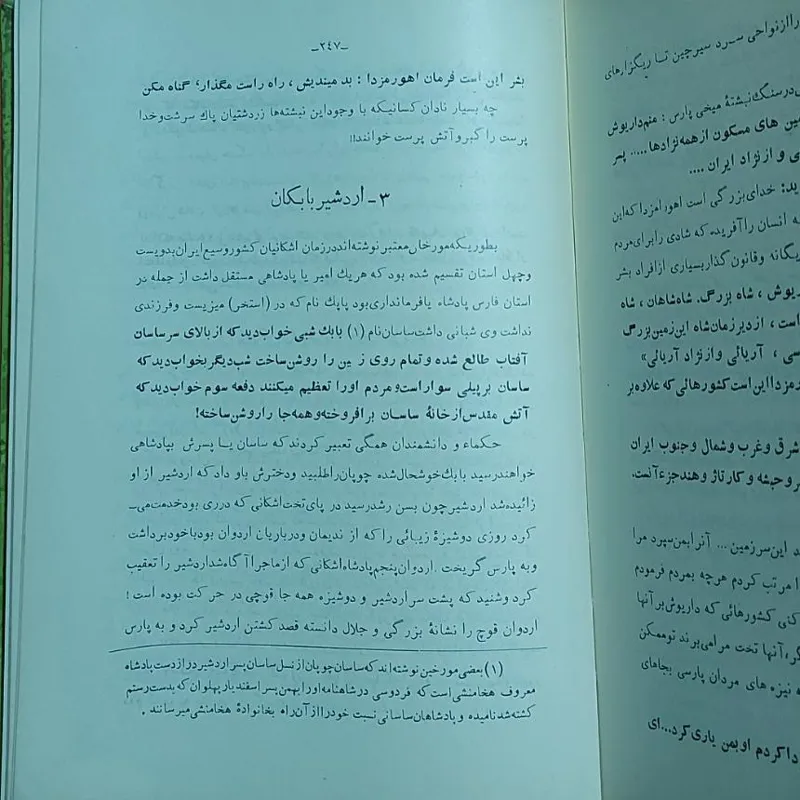 ـ۲۴۷ـ
بشر این است فرمان اهورمزدا : بد میندیش ، راه راست مگذار، گناه مکن
چه بسیار نادان کسانیکه با وجود این نبشته‌ها زردشتیان پاك سرشت وخدا
پرست را گبر و آتش پرست خوانند!!
۳ـ اردشیر بابکان
بطوریکه مورخان معتبر نوشته‌اند در زمان اشکانیان کشور وسیع ایران بدویست
وچهل استان تقسیم شده بود که هریك امیر یا پادشاهی مستقل داشت از جمله در
استان فارس پادشاه یا فرمانداری بود پاپك نام که در (استخر) میزیست وفرزندی
نداشت وی شبانی داشت ساسان نام (۱) بابك شبی خواب دید که از بالای سر ساسان
آفتاب طالع شده و تمام روی ز ین را روشن ساخت شب دیگر بخواب دید که
ساسان بر پیلی سوار است و مردم اورا تعظیم میکنند دفعه سوم خواب دید که
آتش مقدس از خانهٔ ساسان برافروخته و همه جا را روشن ساخته!
حکماء و دانشمندان همگی تعبیر کردند که ساسان یا پسرش بپادشاهی
خواهند رسید بابك خوشحال شده چوپان را طلبید ودخترش باو داد که اردشیر از او
زائیده شد اردشیر چون بسن رشد رسید در پای تخت اشکانی که در ری بود خدمت می‌ـ
کرد روزی دوشیزهٔ زیبائی را که از ندیمان ودرباریان اردوان بود با خود برداشت
وبه پارس گریخت . اردوان پنجم پادشاه اشکانی که از ماجرا آگاه شد اردشیر را تعقیب
کرد وشنید که پشت سر اردشیر و دوشیزه همه جا قوچی در حرکت بوده است !
اردوان قوچ را نشانهٔ بزرگی و جلال دانسته قصد کشتن اردشیر کرد و به پارس
(۱) بعضی مورخین نوشته‌اند که ساسان چوپان از نسل ساسان پسر اردشیر دراز دست پادشاه
معروف هخامنشی است که فردوسی در شاهنامه اورا بهمن پسر اسفندیار پهلوان که بدست رستم
کشته شد نامیده و پادشاهان ساسانی نسبت خود را از آن راه بخانوادهٔ هخامنشی میرسانند .
را از نواحی سرد سیر چین تا ریگزارهای
در سنگ نبشتهٔ میخی پارس : منم داریوش
مین های مسکون از همه نژادها ..... پسر
ی و از نژاد ایران ....
ید: خدای بزرگی است اهورامزدا که این
ه انسان را آفریده که شادی را برای مردم
یگانه وقانون گذار بسیاری از افراد بشر
ریوش ، شاه بزرگ. شاه شاهان ، شاه
است ، از دیر زمان شاه این زمین بزرگ
سی ، آریائی و از نژاد آریائی»
رمزدا این است کشورهائی که علاوه بر
شرق و غرب و شمال و جنوب ایران
ر و حبشه و کارتاژ و هند جزء آنست.
د این سرزمین ... آنرا بمن سپرد مرا
ا مرتب کردم هرچه بمردم فرمودم
کنی کشورهائی که داریوش بر آنها
گر، آنها تخت مرا می‌برند تو ممکن
ه نیزه های مردان پارسی بجاهای
دا کردم او بمن یاری کرد...ای